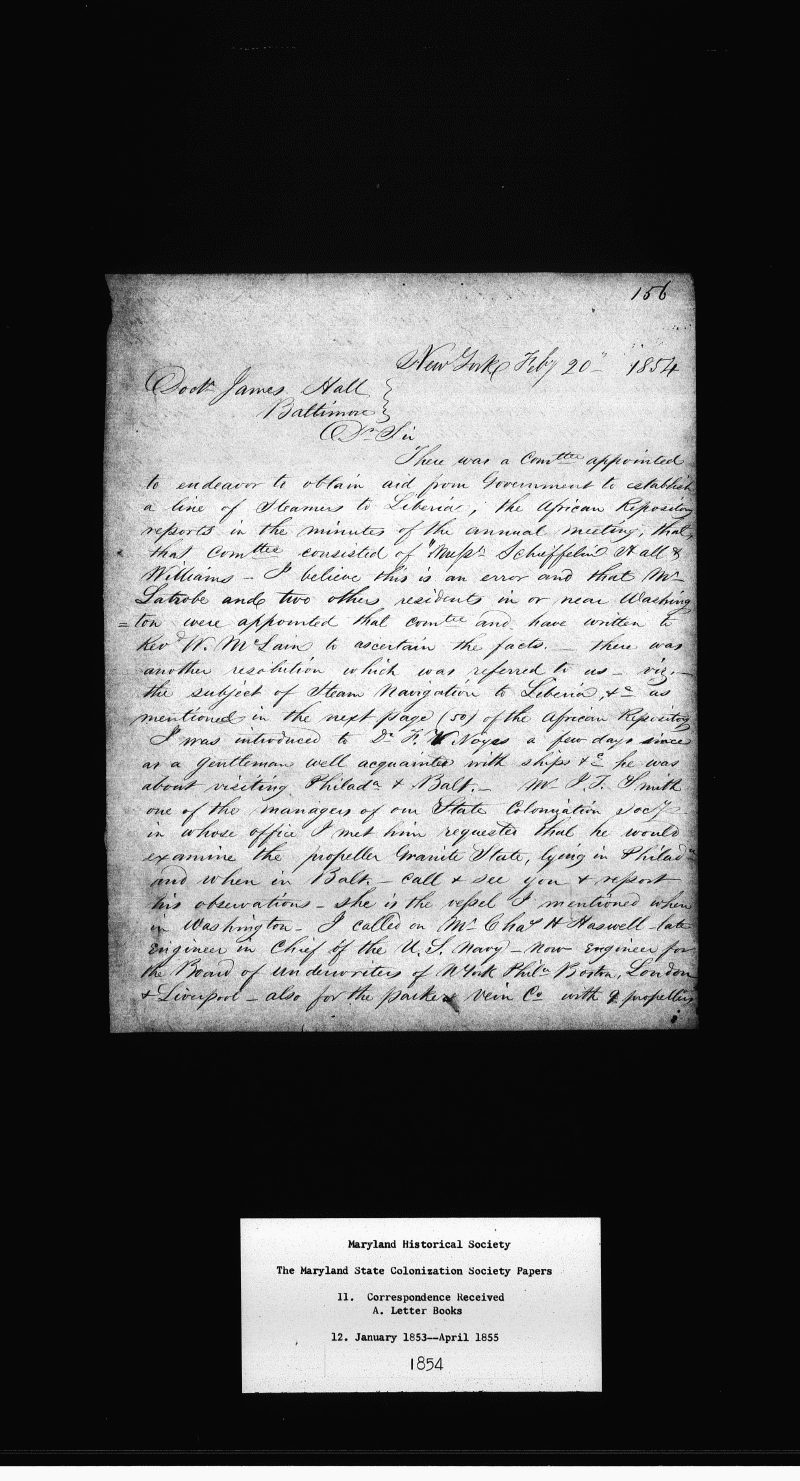 156
New York Feby 20" 1854
Doctr James Hall
Baltimore
Dr Sir
There was a Comttee appointed
to endeavor to obtain aid from Government to establish
a line of Steamers to Liberia; the African Repository
reports in the minutes of the annual meeting, that
that Comttee consisted of "Messrs Schieffelin Hall &
Williams – I believe this is an error and that Mr
Latrobe and two others residents in or near Washing
=ton were appointed that comtee and have written to
Revd W. McLain to ascertain the facts. – there was
another resolution which was referred to us – viz. –
the subject of Steam Navigation to Liberia, &c as
mentioned in the next page (50) of the African Repository
I was introduced to Dr F. Noyes a few days since
as a gentleman well acquainted with ships &c he was
about visiting Philada & Balt. – Mr J. T. Smith
one of the managers of our State Colonization Socy
in whose office I met him requested that he would
examine the propeller Granite State, lying in Philada
and when in Balt. – call & see you & report
his observations – she is the vessel I mentioned when
in Washington – I called on Mr Chas H Haswell – late
Engineer in Chief of the U. S. Navy – now engineer for
the Board of Underwriters of NYork Phila Boston, London
& Liverpool – also for the Parker Vein Co with 9 propellers
Maryland Historical Society
The Maryland State Colonization Society Papers
11. Correspondence Received
A. Letter Books
12. January 1853--April 1855
1854